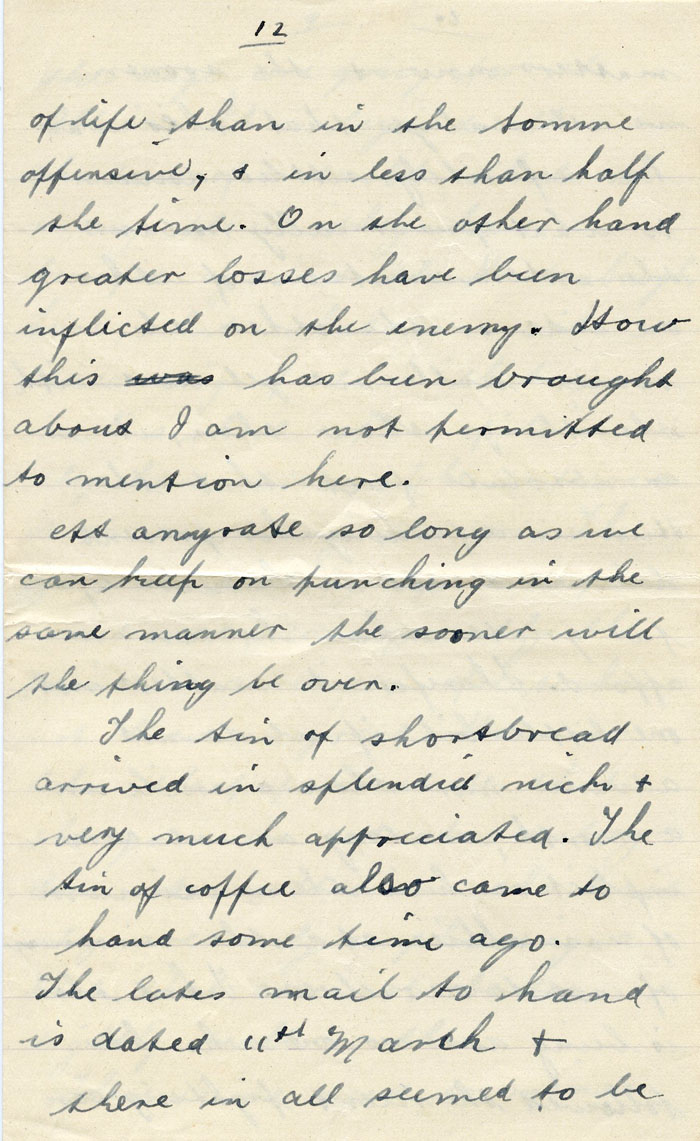 12
of life than in the Somme
offensive, & in less than half
the time. On the other hand
greater losses have been
inflicted on the enemy. How
this was has been brought
about I am not permitted
to mention here.
At anyrate so long as we
can keep on punching in the
same manner the sooner will
the thing be over.
The tin of shortbread
arrived in splendid nick &
very much appreciated. The
tin of coffee also came to
hand some time ago.
The lates mail to hand
is dated 11th March &
there in all seemed to be